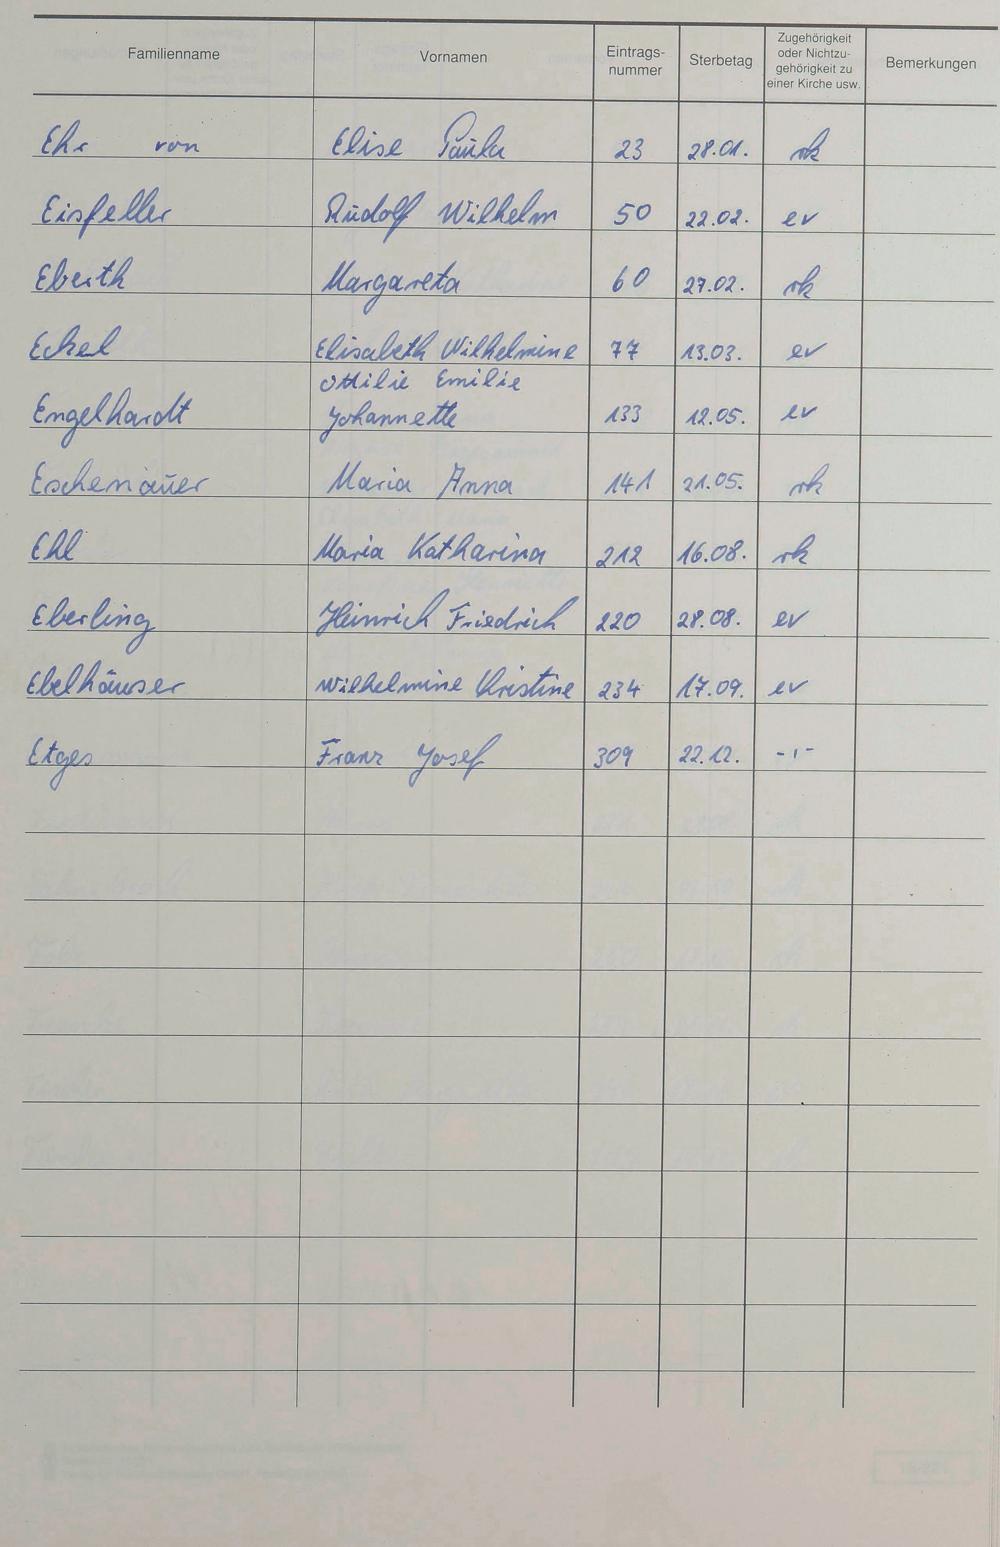 Familienname Vornamen Eintrags- Sterbetag Zugehörigkeit Bemerkungen
nummer oder Nichtzu-
gehörigkeit zu
einer Kirche usw.
Ehr von Elise Paula 23 28.01. rk
Eisfeller Rudolf Wilhelm 50 22.02. ev
Eberth Margareta 60 27.02. rk
Eckel Elisabeth Wilhelmine 77 13.03. ev
Ottilie Emilie
Engelhardt Johannette 133 12.05. ev
Eschenauer Maria Anna 141 21.05. rk
Ehl Maria Katharina 212 16.08. rk
Eberling Heinrich Friedrich 220 28.08. ev
Ebelhäuser Wilhelmine Kristine 234 17.09. ev
Etges Franz Josef 309 22.12. -"-